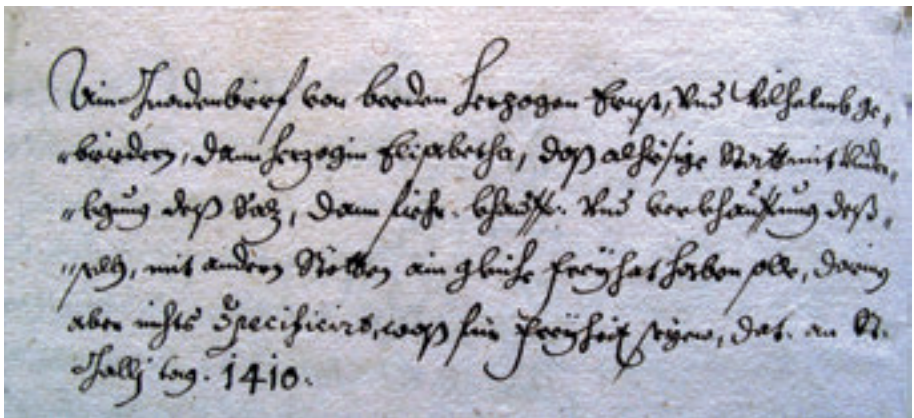 Ain Gnadenbrief von beeden Herzogen Ernst, vnd Wilhelmb ge„
„briedern, dann Herzogin Elisabetha, daß alhiesige Statt mit Nider„
„legung deß Salz, dann fiehr- khauff- vnd verkhauffung deß„
„selb, mit andern Stetten ain gleiche freyhat haben solle, darin
aber nichts Specificirt, waß für freyheit seyen, dat. an St.
Gallj tag. 1410.